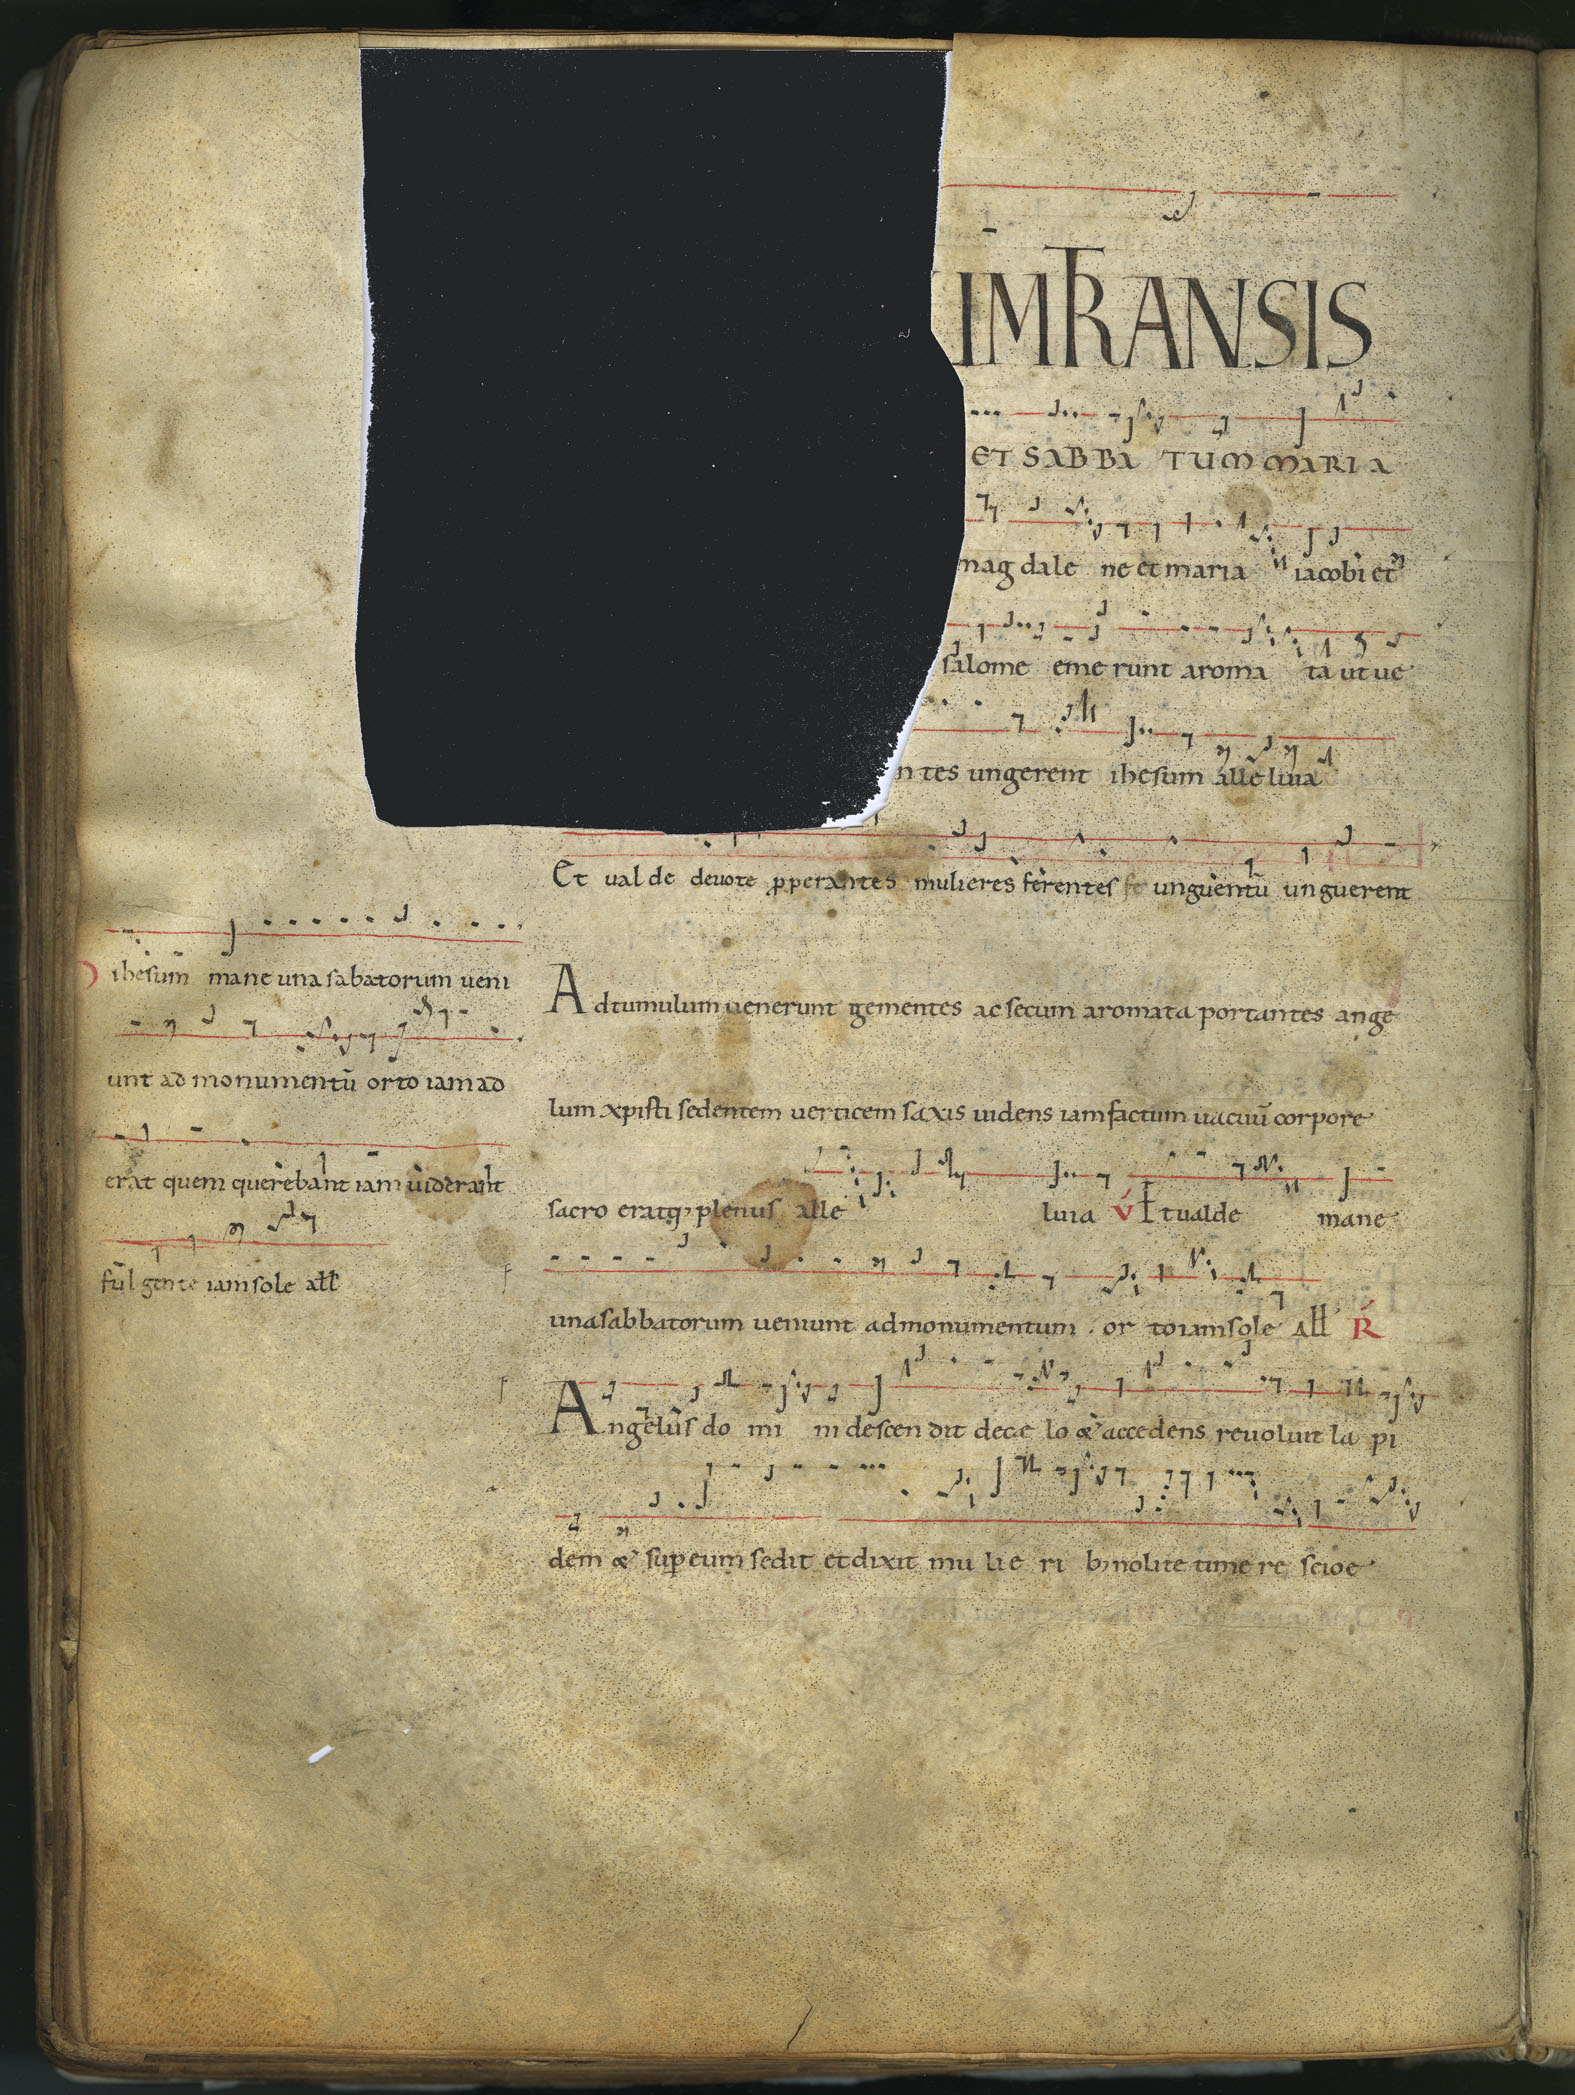 IMTRANSIS
ET SABBA TUM MARIA
mag dale ne et maria iacobi et
salome eme runt aroma ta ut ue
ntes ungerent ihesum alle luia
Et ual de deuote ꝓperantes mulieres ferentes unguentū unguerent
ihesum mane una sabatorum ueni
unt ad monumentū orto iam ad
erat quem querebant iam uiderant
ful gente iam sole all
Ad tumulum uenerunt gementes ac secum aromata portantes ange
lum xpisti sedentem uerticem saxis uidens iam factum uacuū corpore
sacro eratq; plenus alle luia V Et ualde mane
una sabbatorum ueniunt ad monumentum . or to iam sole all R
Angelus do mi ni descen dit de cæ lo & accedens reuoluit la pi
dem & sup eum sedit et dixit mu lie ri b; nolite time re scio e